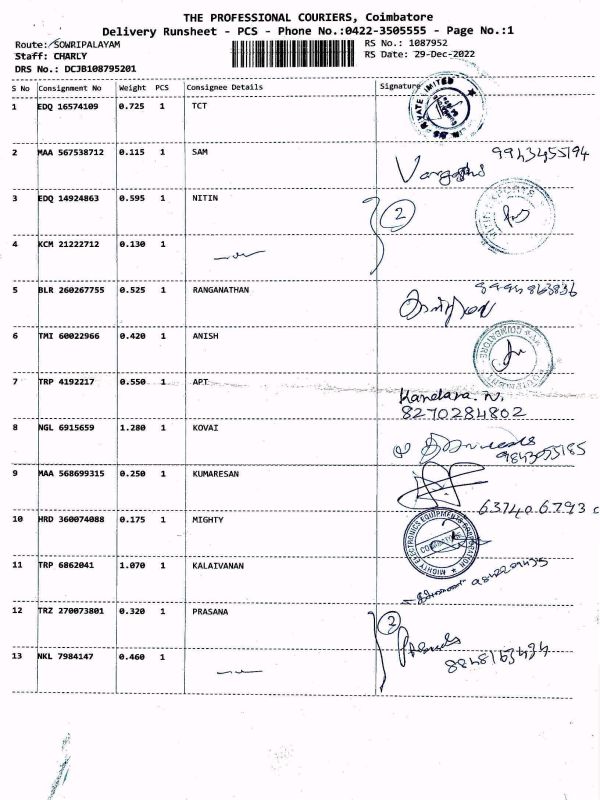 THE PROFESSIONAL COURIERS, Coimbatore
Delivery Runsheet - PCS - Phone No.:0422-3505555 - Page No.:1
Route: SOWRIPALAYAM
Staff: CHARLY
DRS No.: DCJB108795201
RS No.: 1087952
RS Date: 29-Dec-2022
S No Consignment No Weight PCS Consignee Details Signature
1 EDQ 16574109 0.725 1 TCT
PRIVATE LIMITED
2 MAA 567538712 0.115 1 SAM 9943455194
3 EDQ 14924863 0.595 1 NITIN 2
4 KCM 21222712 0.130 1
5 BLR 260267755 0.525 1 RANGANATHAN
6 TMI 60022966 0.420 1 ANISH
COIMBATORE
7 TRP 4192217 0.550 1 APT
8270284802
8 NGL 6915659 1.280 1 KOVAI
9843055185
9 MAA 568699315 0.250 1 KUMARESAN
10 HRD 360074088 0.175 1 MIGHTY
MIGHTY ELECTRONICS EQUIPMENTS CORPORATION
COIMBATORE
11 TRP 6862041 1.070 1 KALAIVANAN
12 TRZ 270073801 0.320 1 PRASANA
13 NKL 7984147 0.460 1